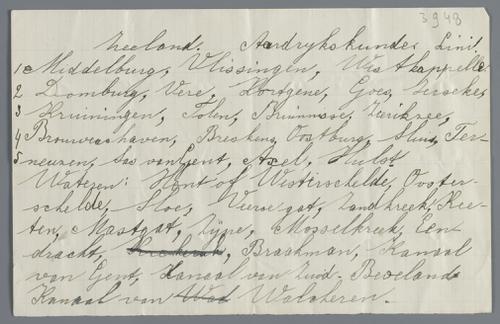 3948
Zeeland. Aardrykskunde Lini
1 Middelburg, Vlissingen, Westkappelle
2 Domburg, Vere, Kortgene, Goes, Ierseke,
3 Kruiningen, Tolen, Bruinisse, Zierikzee,
4 Brouwershaven, Breskens, Oostburg, Sluis, Ter-
5 neuzen, Sas van Gent, Axel, Hulst
Wateren: Hont of Westerschelde, Ooster-
schelde, Sloe, Veerse gat, Zandkreek, Kee-
ten, Mastgat, Zijpe, Mosselkreek, Een-
dracht, Braakman, Kanaal
van Gent, Kanaal van Zuid-Beveland
Kanaal van Walcheren.